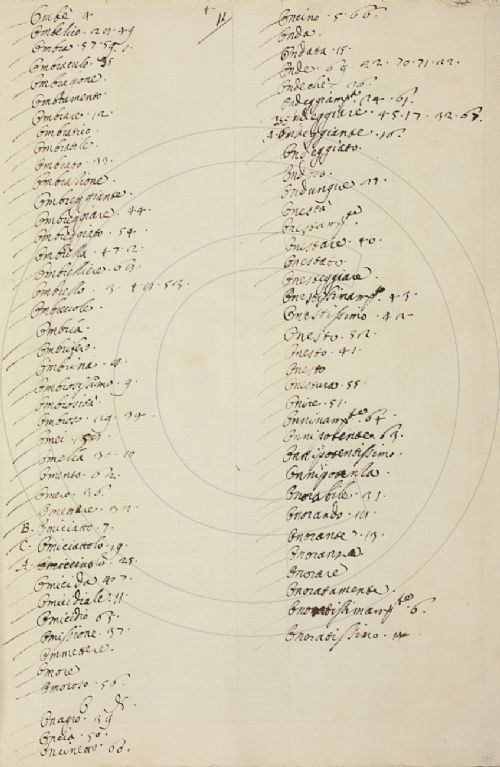 Ombè 4
Ombelico. 20. 49
Ombra 57. 59. 1.
Ombraculo. 35
Ombragione.
Ombramento.
Ombrare. 12.
Ombratico
Ombratile.
Ombrato. 33.
Ombrazione.
Ombreggiante.
Ombreggiare. 44.
Ombreggiato. 54.
Ombrella. 47. 2.
Ombrelliere. 69.
Ombrello. 3. 49. 53.
Ombrevole.
Ombria.
Ombrifero.
Ombrina.
Ombrosissimo. 9.
Ombrosità.
Ombroso. 29. 34.
Omei.
Omelia 3. 10
Omento. 62.
Omero. 36.
Omettere.
B. Omiciatto. 7.
C. Omiciattolo. 19.
A. Omiccino. 25.
Omicida 47.
Omicidiale. 11.
Omicidio 63.
Omissione. 37.
Ommettere.
Omore
Omoroso. 56.
Onagro. 39
Oncia. 50.
Oncinetto 60.
Oncino. 5. 66.
Onda.
Ondata. 15.
Onde. 69. 22. 70. 71. 22.
Ondechè. 26
Ondeggiamto 24. 61.
B. Ondeggiare. 45. 17. 32. 67.
A. Ondeggiante. 16.
Ondeggiato.
Ondoso.
Ondunque.
Onestà
Onestamte
Onestare. 40.
Onestato.
Onesteggiare
Onestissimamte 43.
Onestissimo. 42
Onesto. 52.
Onesto. 41.
Onesto
Onestura. 55.
Onire. 51.
Onninamte. 64.
Onnipotente. 63.
Onnipotentissimo.
Onnipotenza.
Onorabile. 31.
Onorando.
Onorante. 13.
Onoranza
Onorare
Onoratamente.
Onoratissimamte 6.
Onoratissimo.